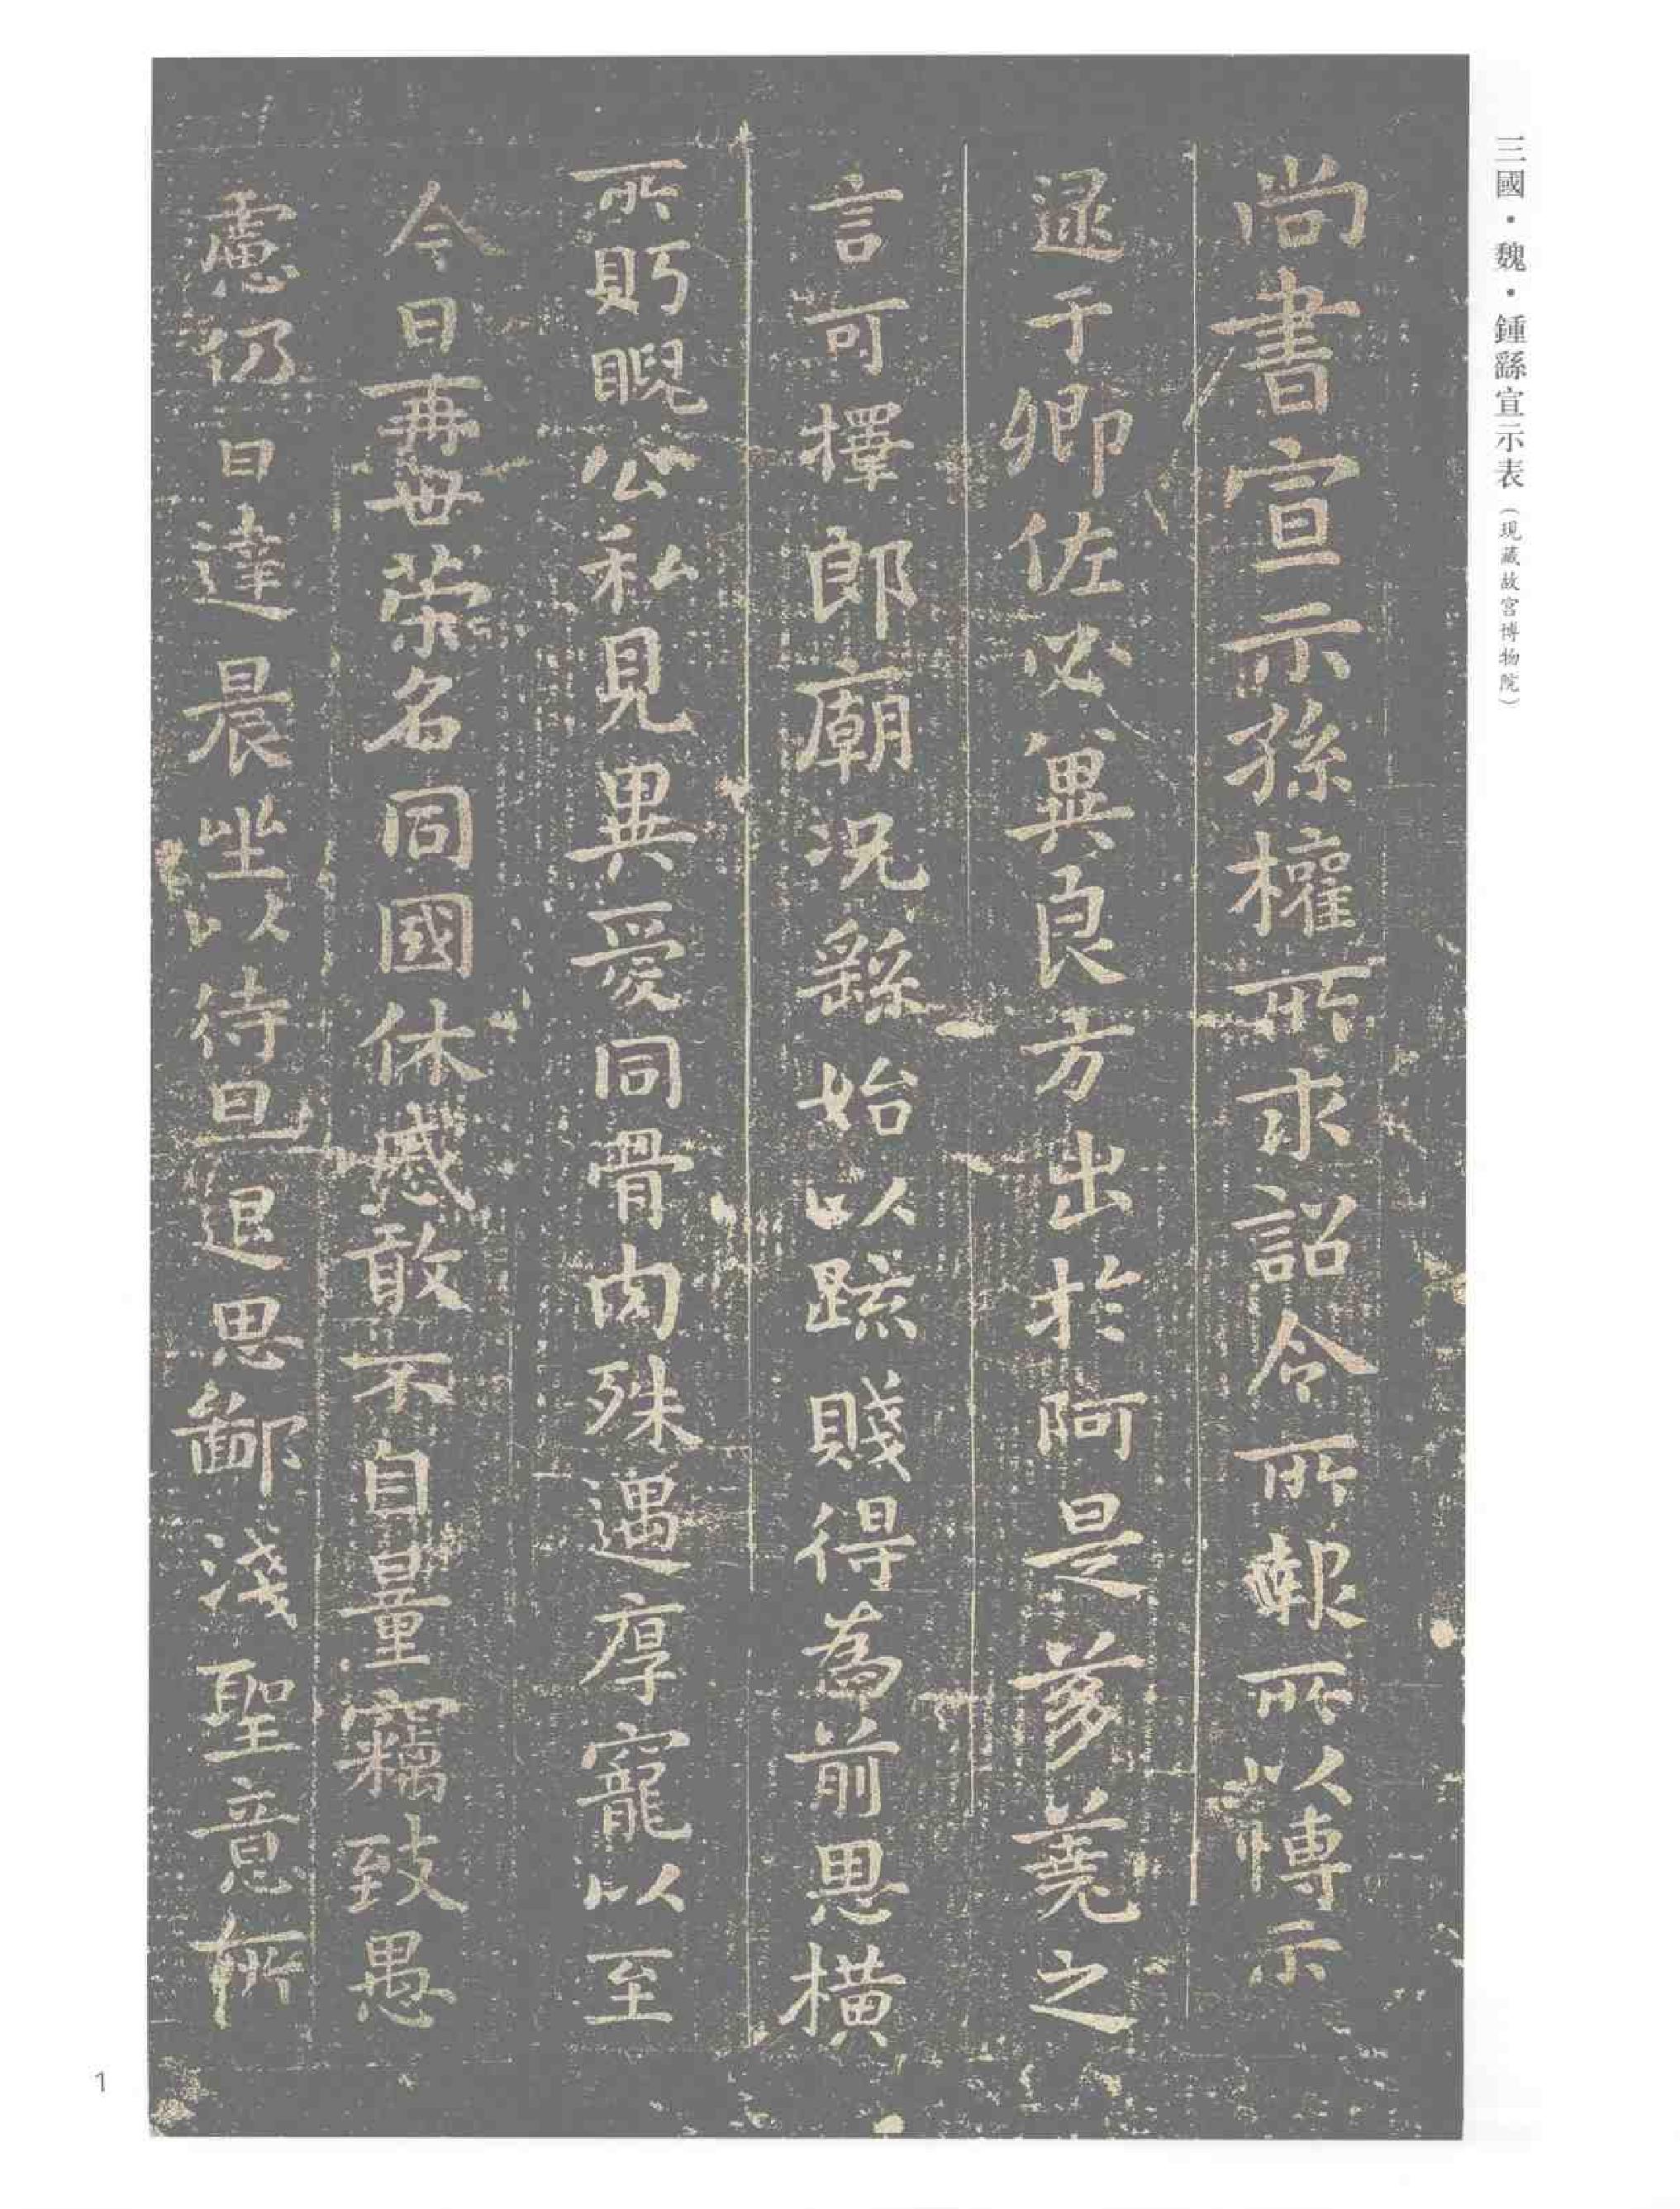 三國·魏·鍾繇宣示表（現藏故宮博物院）
尚書宣示孫權所求詔令所報所以博示
逮于卿佐必冀良方出於阿是芻蕘之
言可擇郎廟况繇始以疏賤得為前恩橫
所眄睨公私見異愛同骨肉殊遇厚寵以至
今日再世榮名同國休慼敢不自量竊致愚
慮仍日達晨坐以待旦退思鄙淺聖意所
1